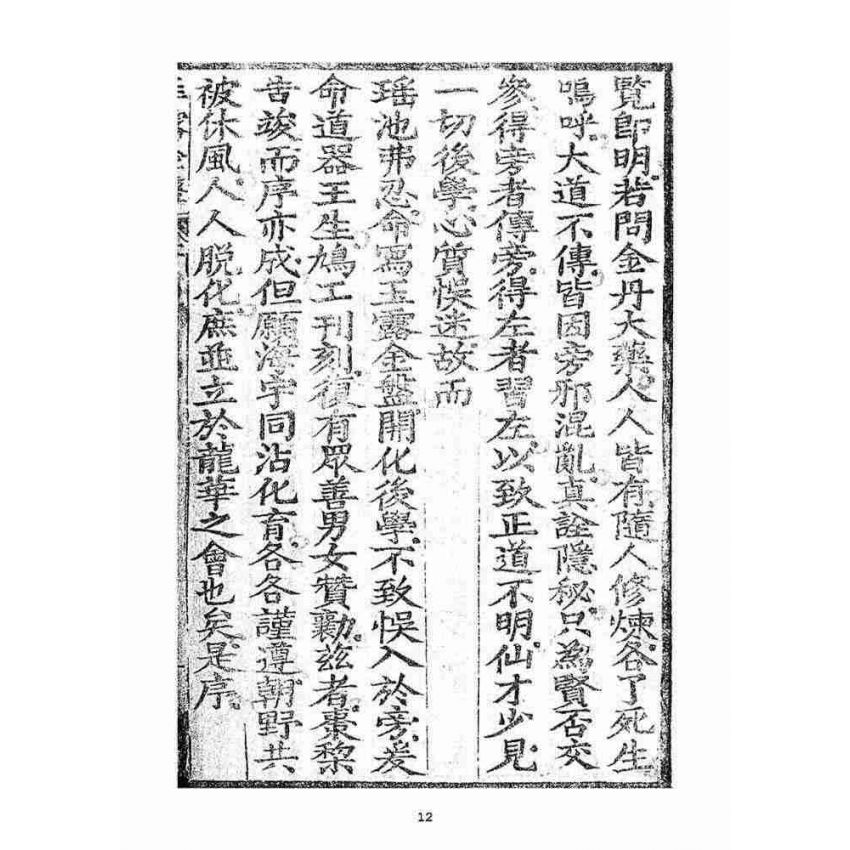 覽即明。若問金丹大藥。人人皆有。隨人修煉。各了死生
嗚呼。大道不傳。皆因旁邪混亂。真詮隱秘。只為賢否交
參。得旁者傳旁。得左者習左。以致正道不明。仙才少見。
一切後學。心質悞迷。故而
瑤池弗忍。命寫玉露金盤。開化後學。不致悞入於旁。爰
命道器王生。鳩工刊刻。復有眾善男女贊勷。茲者棗梨
告竣。而序亦成。但願海宇同沾化育。各各謹遵。朝野共
被休風。人人脱化。庶並立於龍華之會也矣。是序。
12